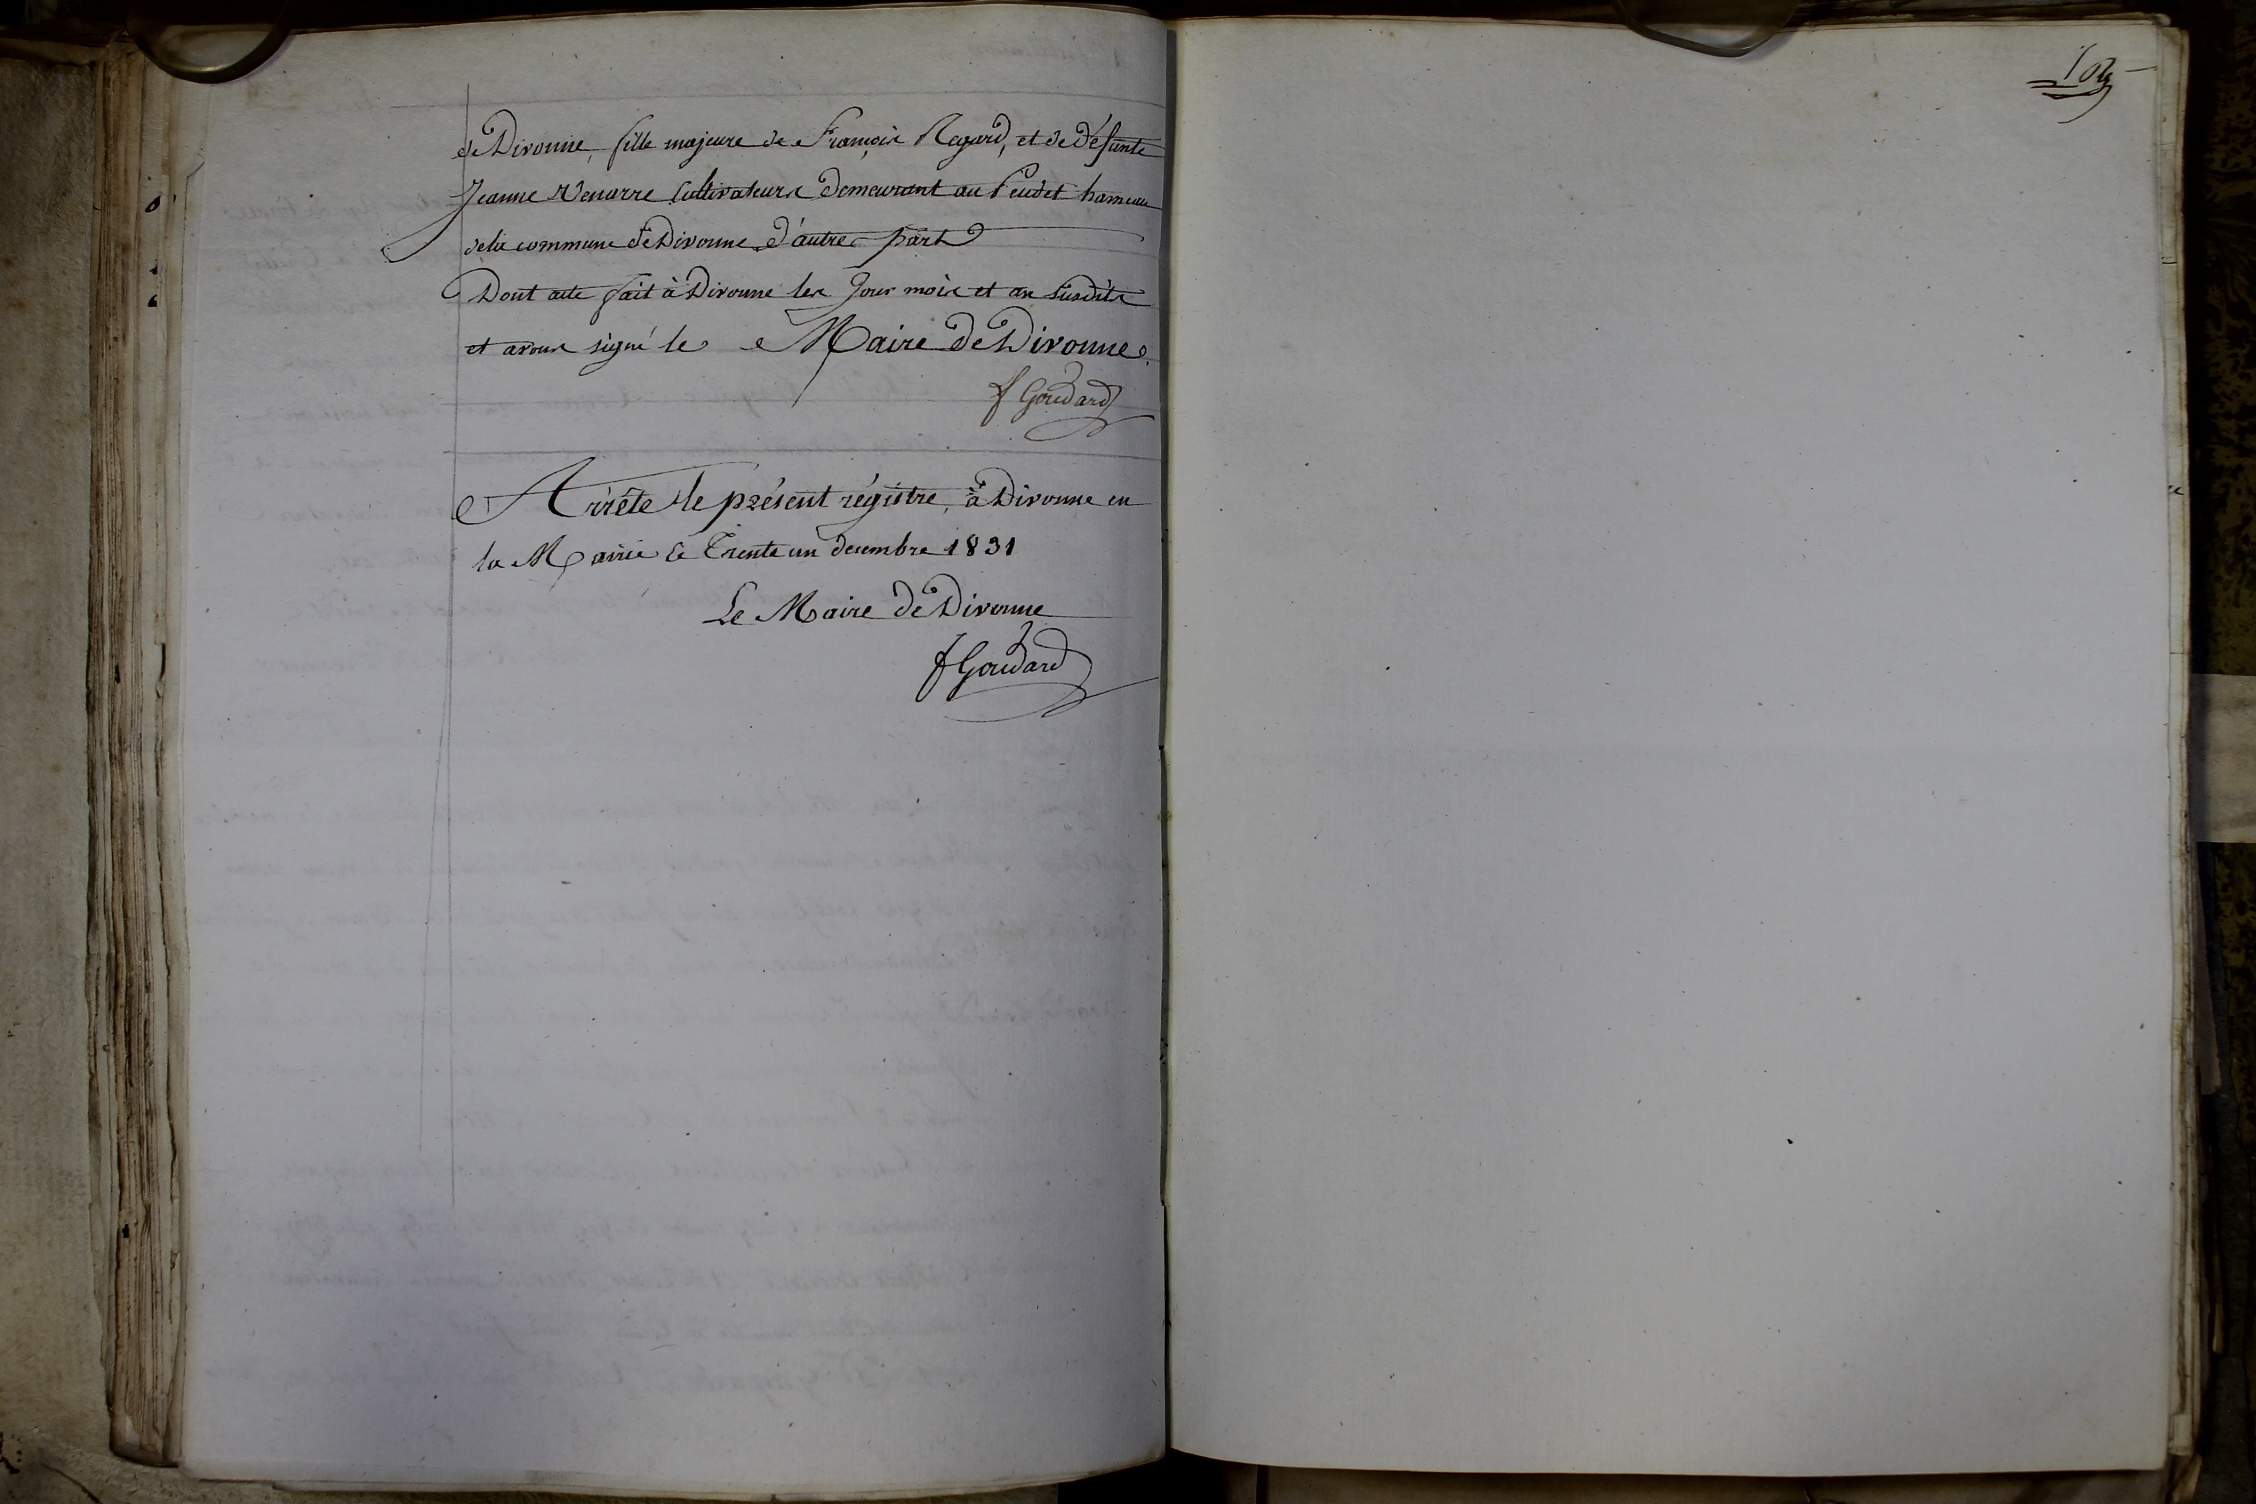 de Divonne, fille majeure de François Regard, et de défunte
Jeanne cultivateurs demeurant au hameau
de la commune de Divonne, d'autre part
Dont acte fait à Divonne les Jour mois et an susdits
et avons signé le Maire de Divonne.
f Goudard
Arrêté le présent régistre, à Divonne en
la Mairie le Trente un decembre 1831
Le Maire de Divonne
f Goudard